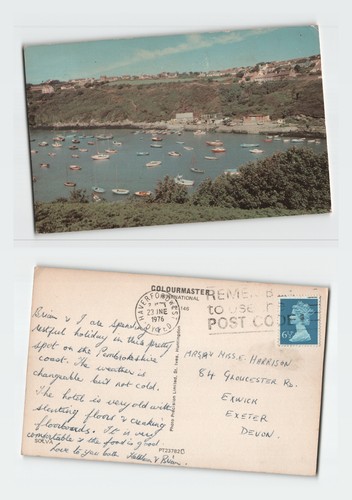 COLOURMASTER
INTERNATIONAL
HAVERFORDWEST
23 JNE
1976
DYFED
REMEMBER
to USE THE
POST CODE
6½P
Brian & I are spending a
restful holiday in this pretty
spot on the Pembrokeshire
coast. The weather is
changeable but not cold.
The hotel is very old with
slanting floors & creaking
floorboards. It is very
comfortable & the food is good.
Love to you both
SOLVA
PT23782
Photo Precision Limited, St. Ives, Huntingdon
MRS & MISS E. HARRISON
84 GLOUCESTER RD.
EXWICK
EXETER
DEVON.